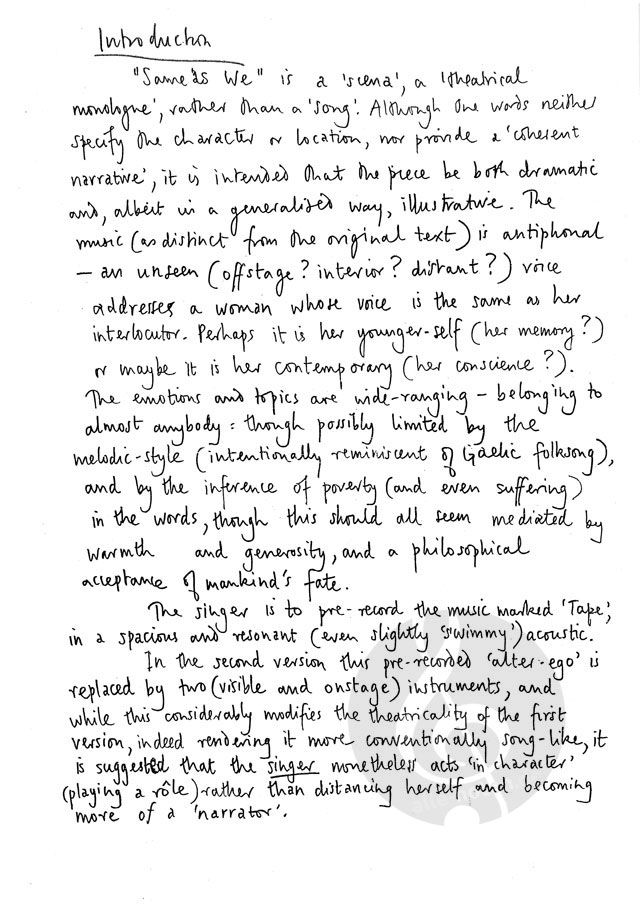 Introduction
"Same as We" is a 'scena', a 'theatrical
monologue', rather than a 'song'. Although the words neither
specify the character or location, nor provide a 'coherent
narrative', it is intended that the piece be both dramatic
and, albeit in a generalised way, illustrative. The
music (as distinct from the original text) is antiphonal
– an unseen (offstage? interior? distant?) voice
addresses a woman whose voice is the same as her
interlocutor. Perhaps it is her younger-self (her memory?)
or maybe it is her contemporary (her conscience?).
The emotions and topics are wide-ranging – belonging to
almost anybody: though possibly limited by the
melodic-style (intentionally reminiscent of Gaelic folksong),
and by the inference of poverty (and even suffering)
in the words, though this should all seem mediated by
warmth and generosity, and a philosophical
acceptance of mankind's fate.
The singer is to pre-record the music marked 'Tape',
in a spacious and resonant (even slightly 'swimmy') acoustic.
In the second version this pre-recorded 'alter-ego' is
replaced by two (visible and onstage) instruments, and
while this considerably modifies the theatricality of the first
version, indeed rendering it more conventionally song-like, it
is suggested that the singer nonetheless acts 'in character'
(playing a rôle) rather than distancing herself and becoming
more of a 'narrator'.